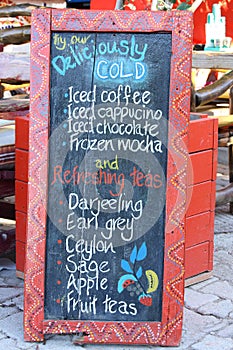 Try our
Deliciously
COLD
• Iced coffee
• Iced cappucino
• Iced chocolate
• Frozen mocha
and
Refreshing teas
• Darjeeling
• Earl grey
• Ceylon
• Sage
• Apple
• Fruit teas